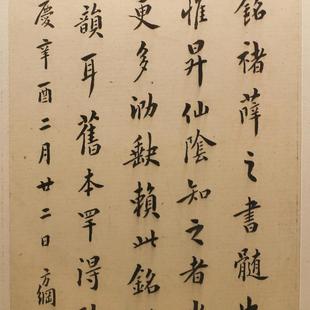 銘褚薛之書髓也
惟昇仙陰知之者
更多泐缺賴此銘
韻耳舊本罕得
慶辛酉二月廿二日 方綱